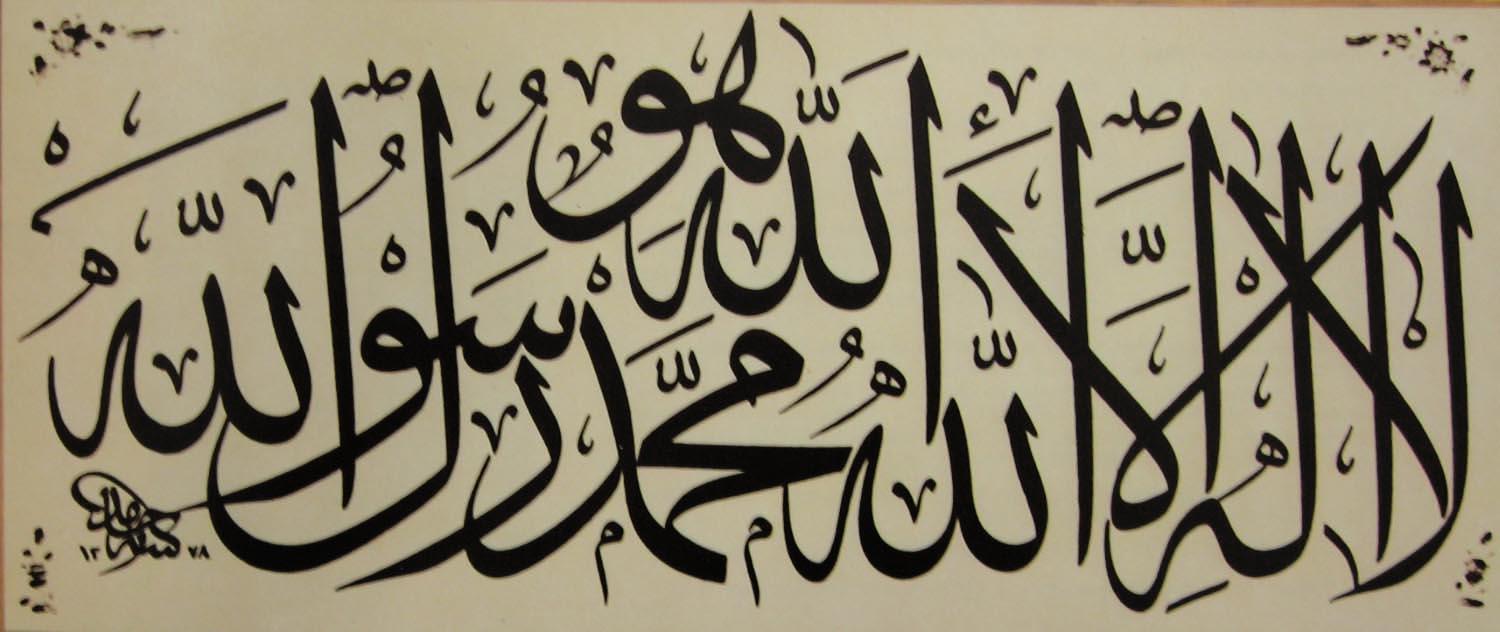 لَا إِلٰهَ إِلَّا اللّٰهُ هُوَ اللّٰهُ مُحَمَّدٌ رَسُولُ اللّٰهِ
١٣٧٨